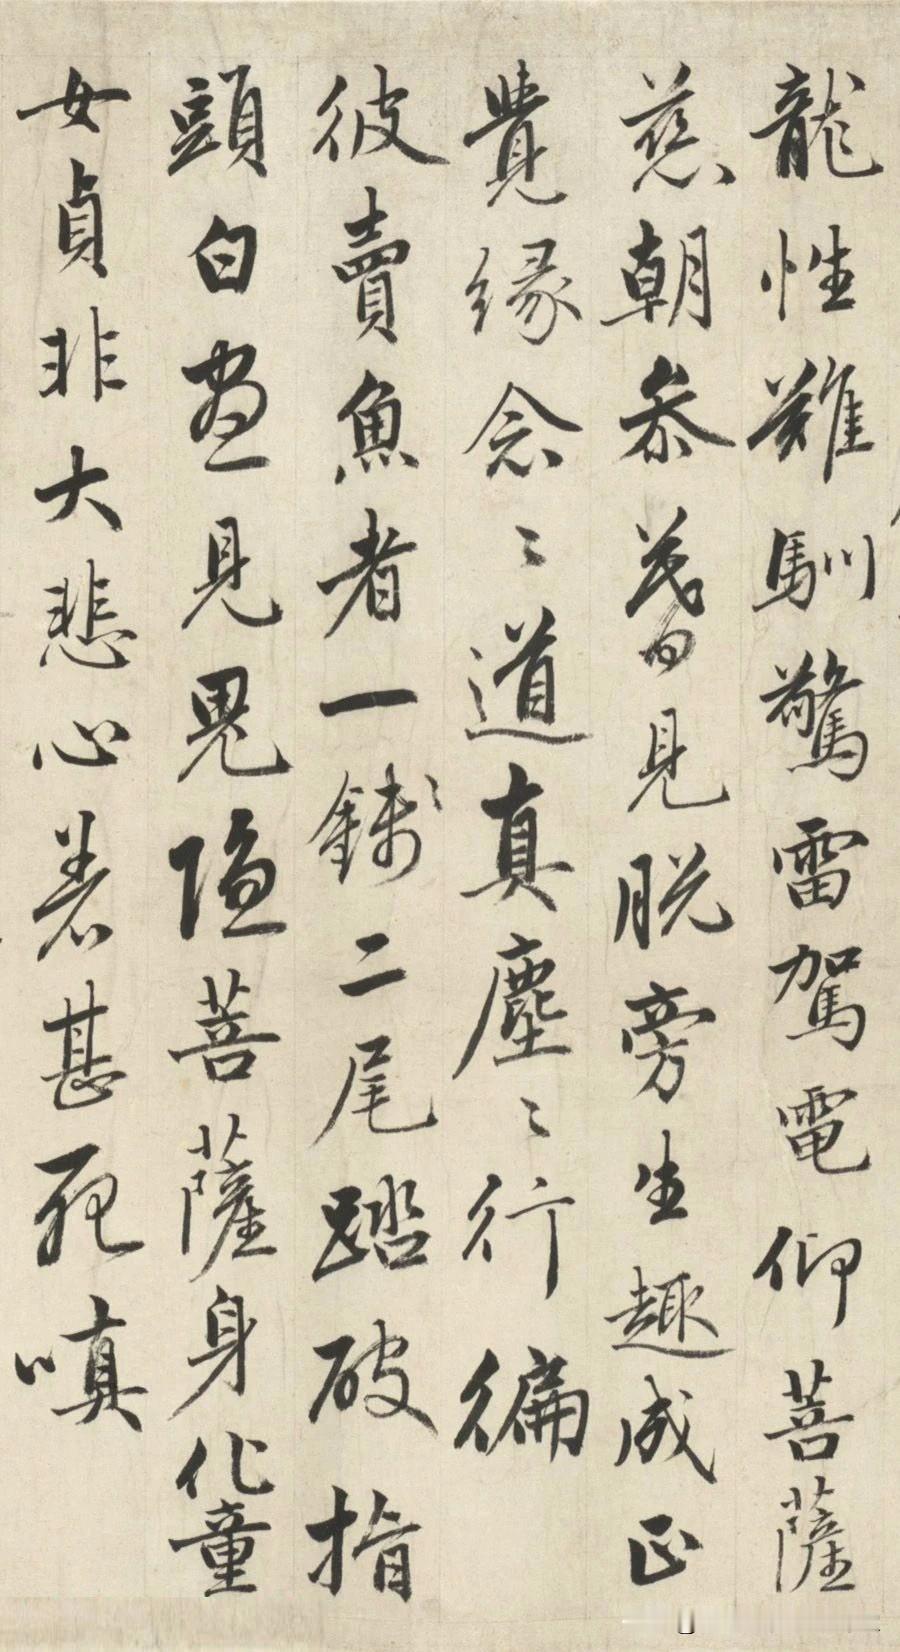 龍性難馴驚雷駕電仰菩薩
慈朝參暮見脱旁生趣成正
覺緣念〻道真塵〻行徧
彼賣魚者一錢二尾踏破指
頭白晝見鬼隐菩薩身化童
女貞非大悲心着甚死嗔